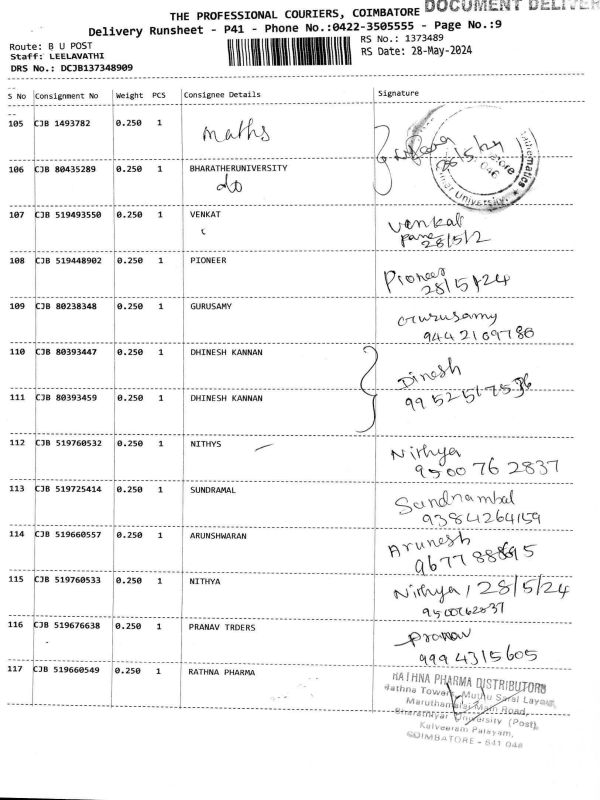 DOCUMENT DELIVER
THE PROFESSIONAL COURIERS, COIMBATORE
Delivery Runsheet - P41 - Phone No.:0422-3505555 - Page No.:9
Route: B U POST
RS No.: 1373489
Staff: LEELAVATHI
RS Date: 28-May-2024
DRS No.: DCJB137348909
S No Consignment No Weight PCS Consignee Details Signature
105 CJB 1493782 0.250 1 maths
28/5/24
106 CJB 80435289 0.250 1 BHARATHERUNIVERSITY
do
107 CJB 519493550 0.250 1 VENKAT venkat
28/5/2
108 CJB 519448902 0.250 1 PIONEER Pioneer
28/5/24
109 CJB 80238348 0.250 1 GURUSAMY Gurusamy
9442109786
110 CJB 80393447 0.250 1 DHINESH KANNAN
Dinesh
111 CJB 80393459 0.250 1 DHINESH KANNAN
112 CJB 519760532 0.250 1 NITHYS Nithya
9500762837
113 CJB 519725414 0.250 1 SUNDRAMAL Sundrambal
9384264159
114 CJB 519660557 0.250 1 ARUNSHWARAN Arunesh
115 CJB 519760533 0.250 1 NITHYA Nithya, 28/5/24
9500762837
116 CJB 519676638 0.250 1 PRANAV TRDERS Pranav
9994315605
117 CJB 519660549 0.250 1 RATHNA PHARMA
RATHNA PHARMA DISTRIBUTORS
Rathna Tower, Muthu Sarai Layout,
Maruthamalai Main Road,
Bharathiyar University (Post),
Kalveeram Palayam,
COIMBATORE - 641 046